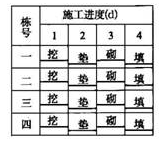 栋号 施工进度(d)
1 2 3 4
一 挖 垫 砌 填
二 挖 垫 砌 填
三 挖 垫 砌 填
四 挖 垫 砌 填